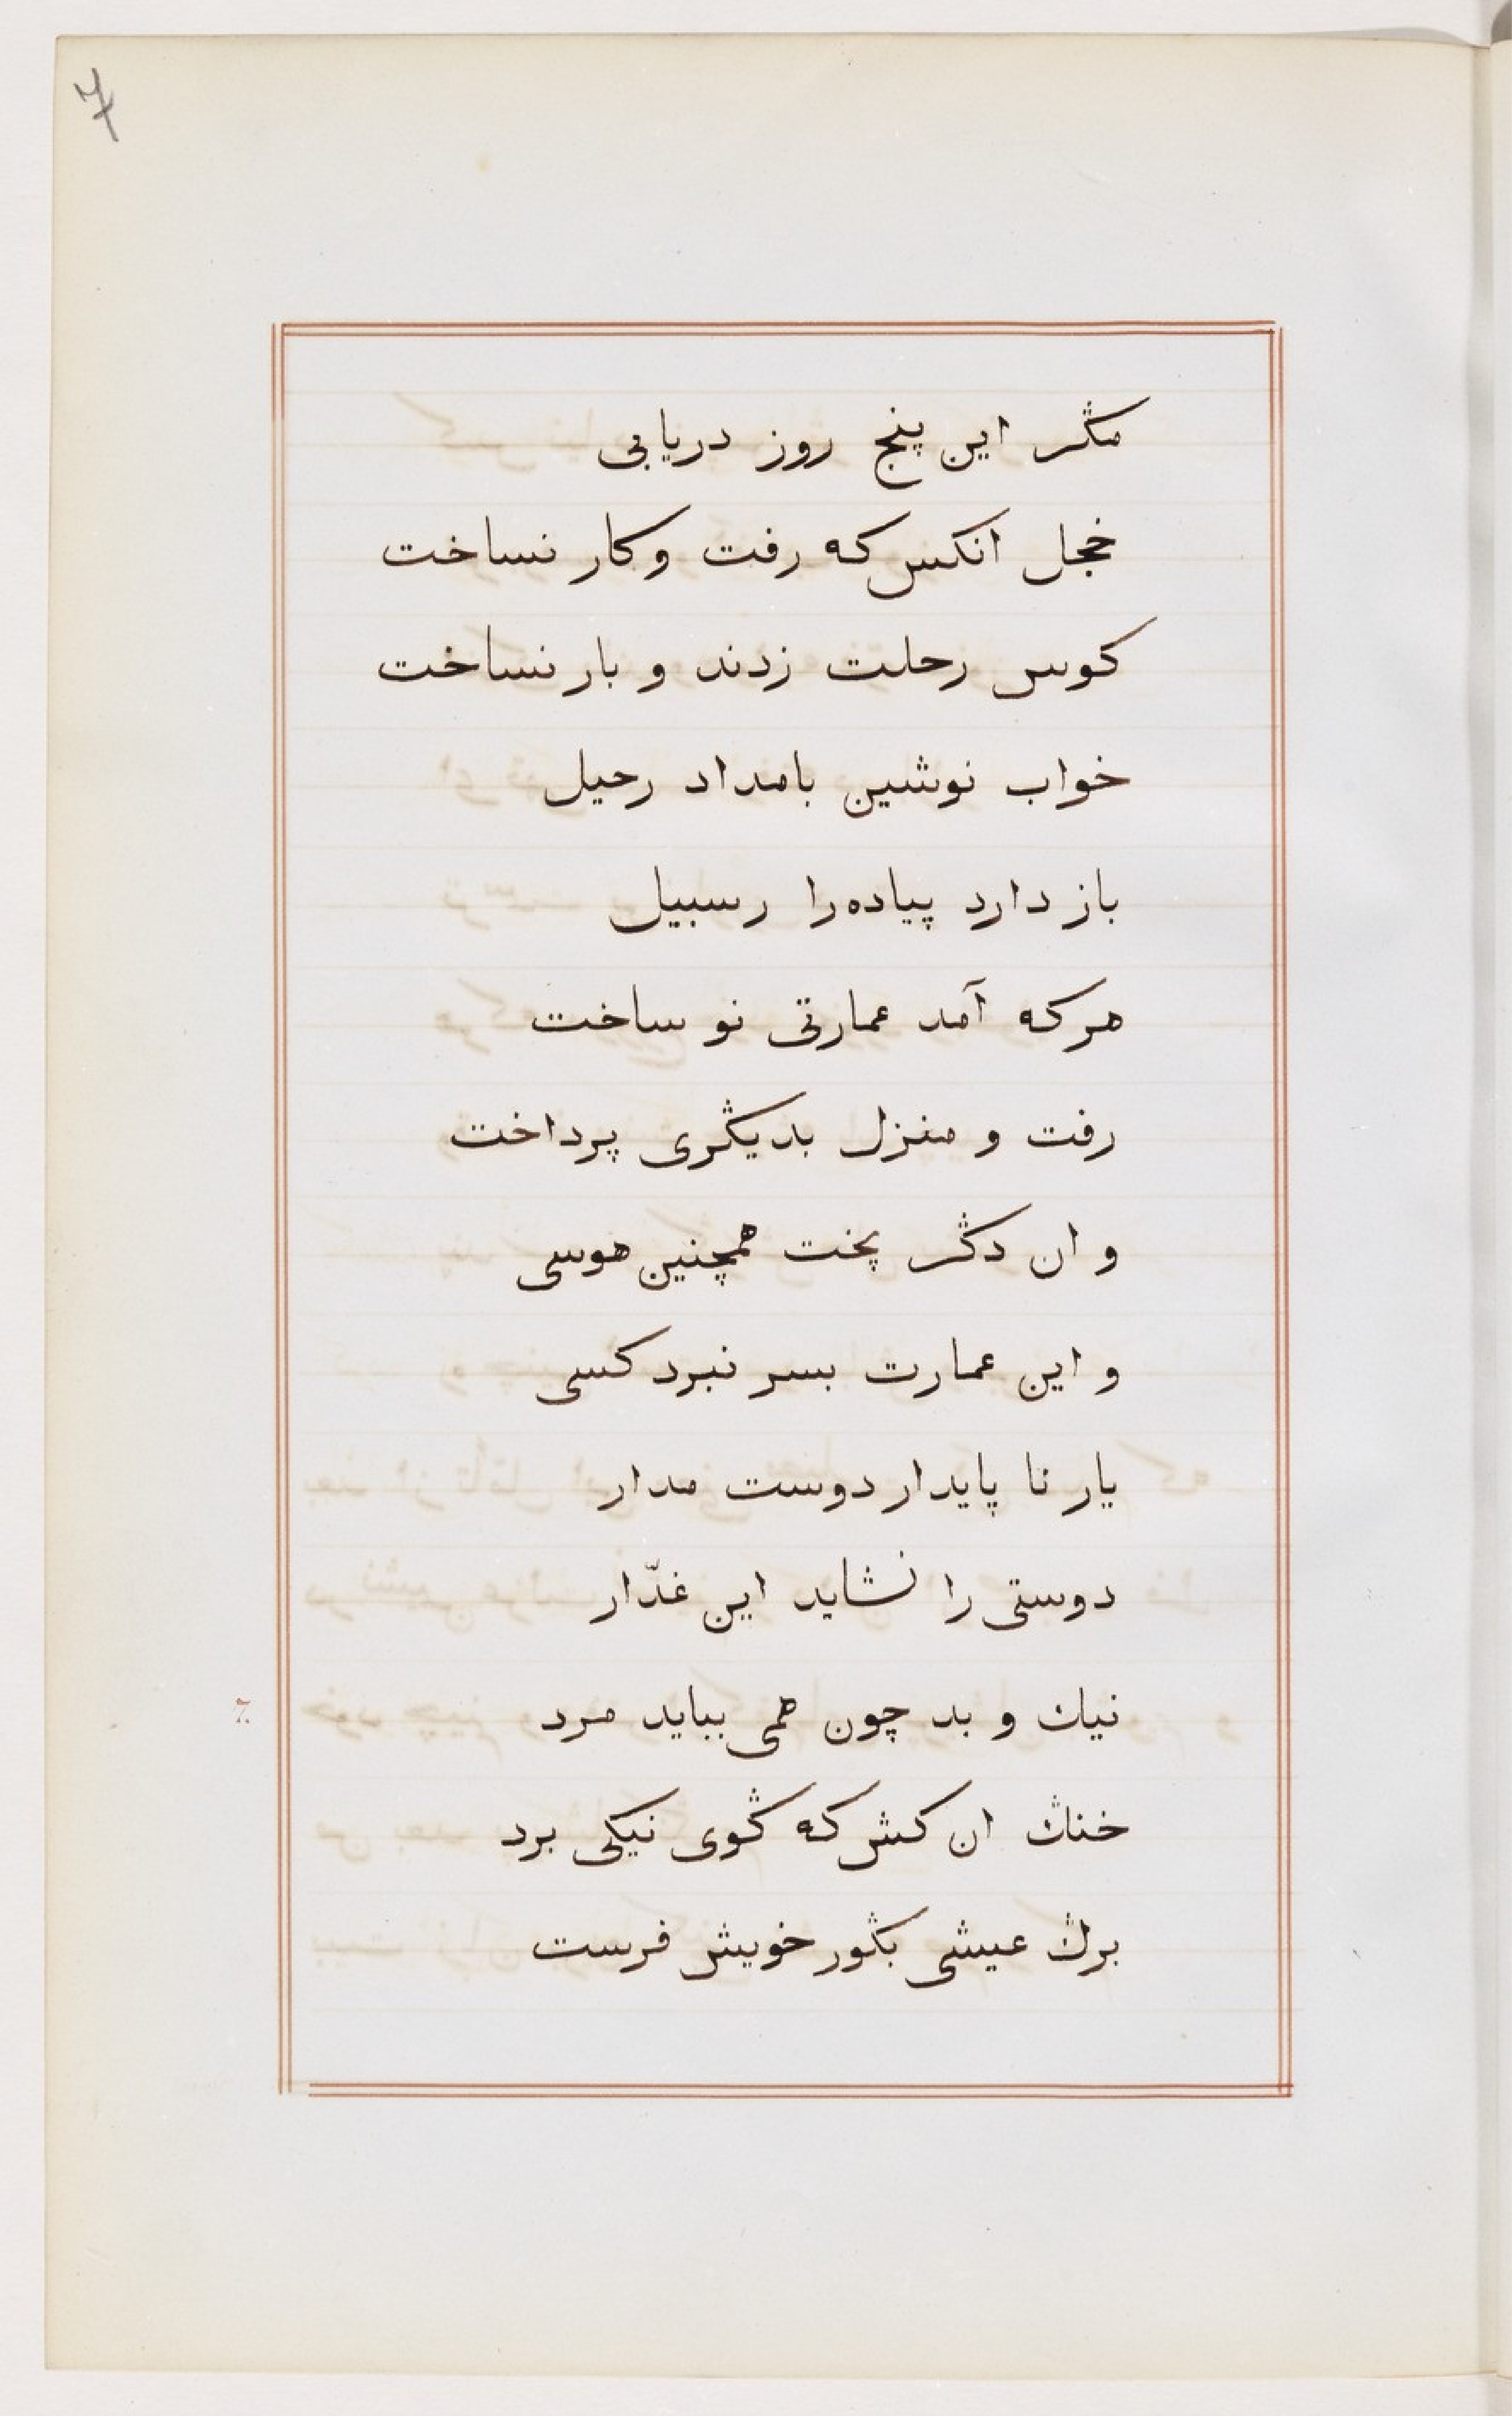 7
مگر این پنج روز دریابی
خجل انکس که رفت و کار نساخت
کوس رحلت زدند و بار نساخت
خواب نوشین بامداد رحیل
باز دارد پیاده را رسبیل
هر که آمد عمارتی نو ساخت
رفت و منزل بدیگری پرداخت
و ان دگر پخت همچنین هوسی
و این عمارت بسر نبرد کسی
یار نا پایدار دوست مدار
دوستی را نشاید این غدّار
نیك و بد چون همی بباید مرد
خنك ان کش که گوی نیکی برد
برگ عیشی بگور خویش فرست